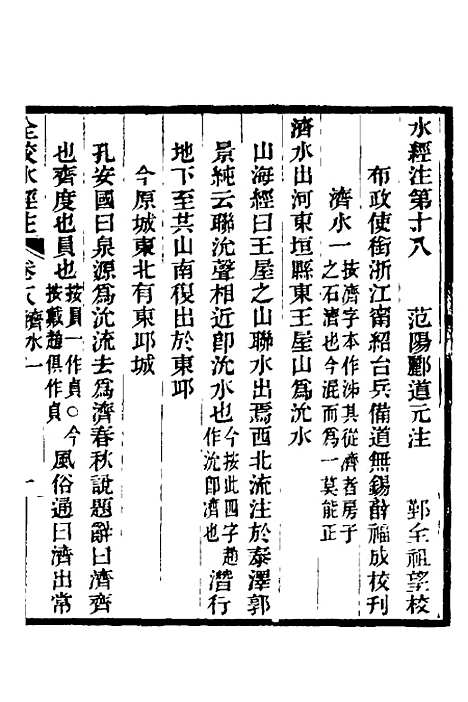 水經注第十八　范陽酈道元注　鄞全祖望校
布政使銜浙江甯紹台兵備道無錫薛福成校刊
濟水一 按濟字本作泲其從濟者房子之石濟也今混而為一莫能正
濟水出河東垣縣東王屋山為沇水
山海經曰王屋之山聯水出焉西北流注於泰澤郭
景純云聯沇聲相近卽沇水也 今按此四字趙作沇卽濟也 潛行
地下至共山南復出於東邱
今原城東北有東邱城
孔安國曰泉源為沇流去為濟春秋說題辭曰濟齊
也齊度也員也 按員一作貞○今按戴趙俱作貞 風俗通曰濟出常
全校水經注 卷八濟水一 一